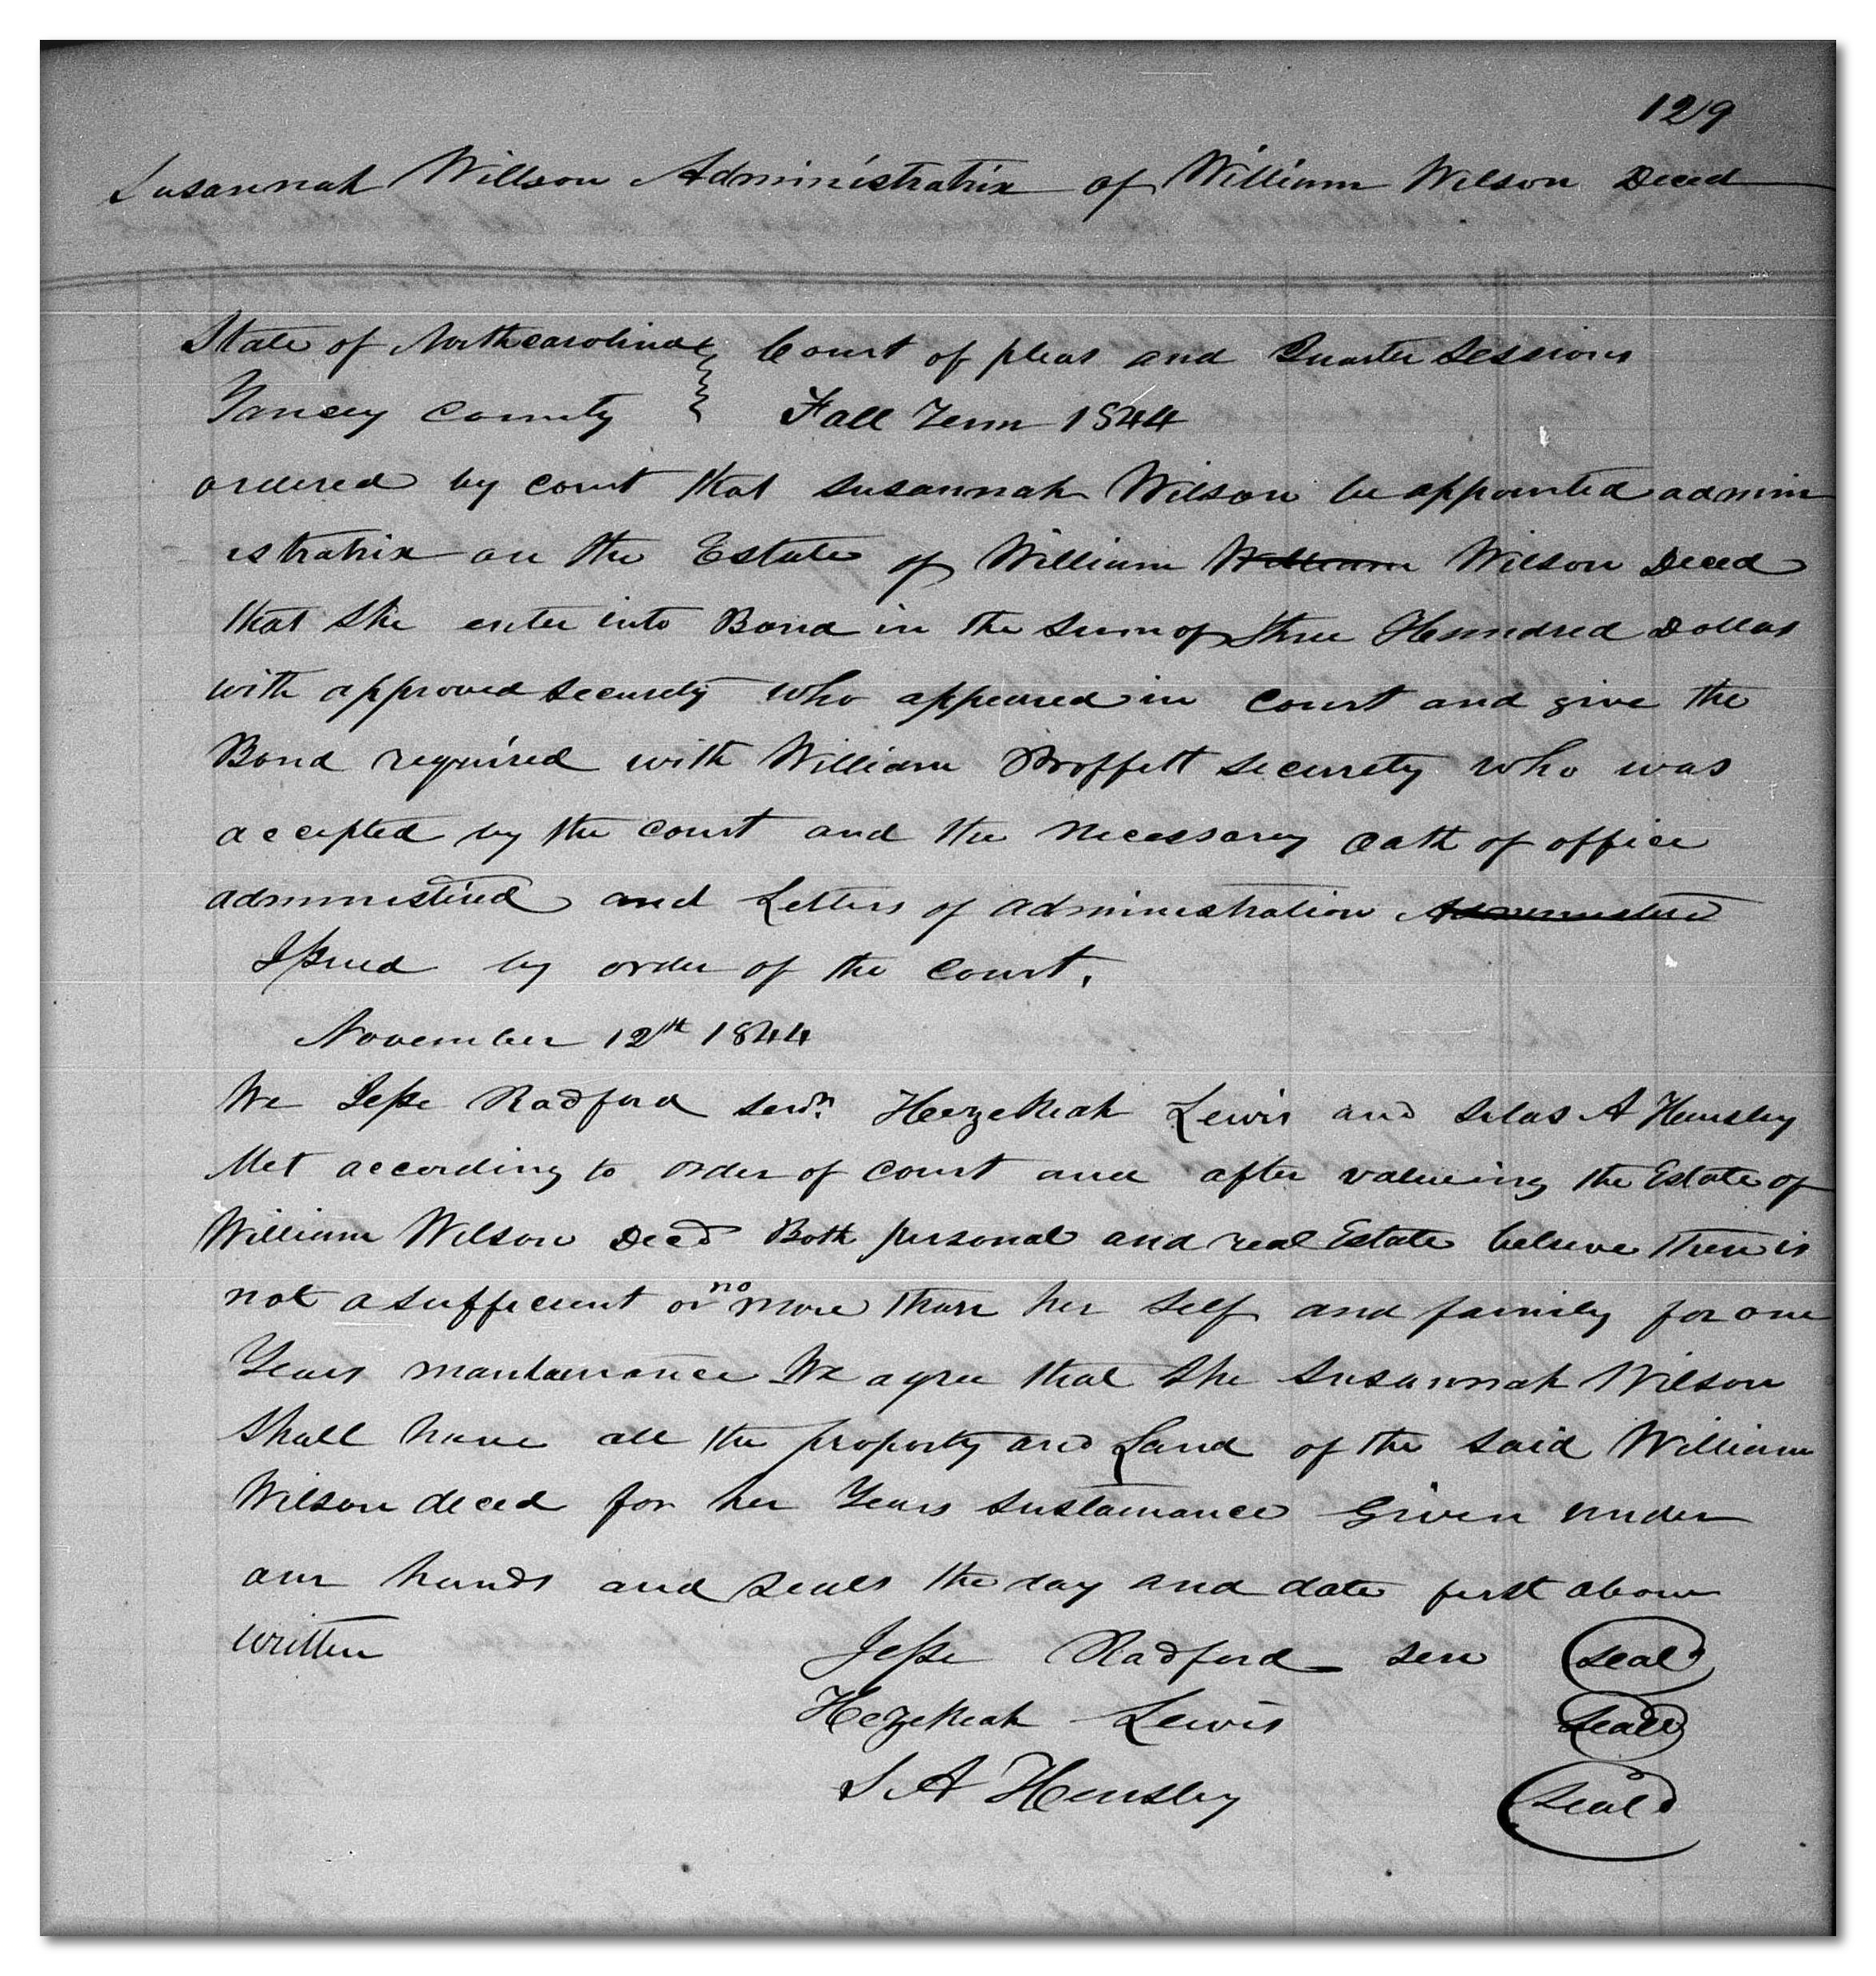 129
Susannah Willson Administratrix of William Wilson Deced
State of Northcarolina } Court of pleas and Quarter Sessions
Yancey County } Fall Term 1844
ordered by court that Susannah Wilson be appointed admin
istratrix on the Estate of William William Wilson Deced
that she enter into Bond in the sum of three Hunndred Dollars
with approved security who appeared in court and give the
Bond required with William Proffett security who was
accepted by the court and the necessary oath of office
administired and Letters of administration Administered
Issued by order of the court.
November 12th 1844
We Jesse Radford senr. Hezekeah Lewis and Silas A Hensley
Met according to order of court and after valueing the Estate of
William Wilson Deced Both personal and real Estate beleive there is
not a sufficient or no more than her self and family for one
Years mantainance We agree that she Susannah Wilson
shall have all the property and Land of the said William
Wilson deced for her Years sustainance Given under
our hands and seals the day and date first above
written Jesse Radford sen seal
Hezekeah Lewis seal
S A Hensley seal